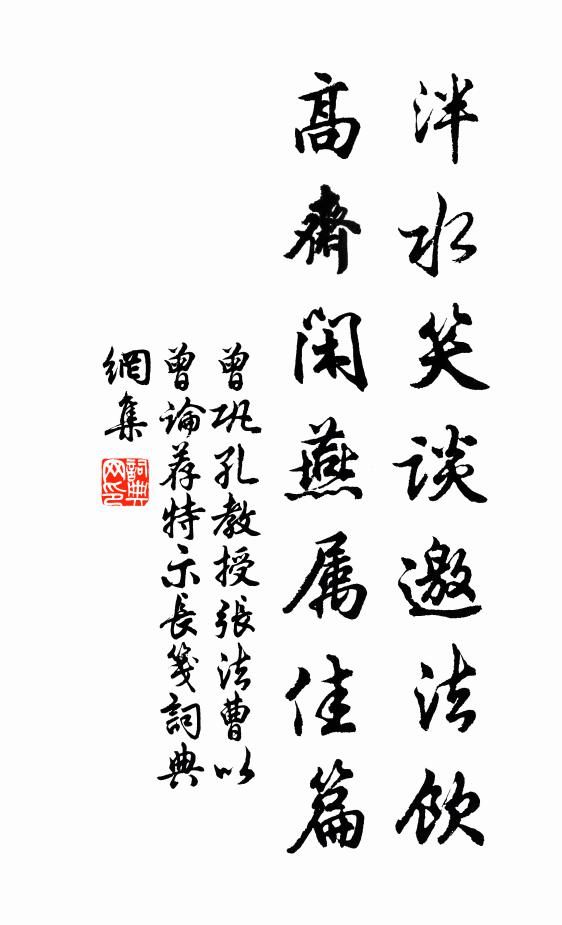 泮水笑谈邀法饮
高斋闲燕属佳篇
曾巩孔教授張法曹以
曾论荐特示長箋詞典
網集
詞典网印